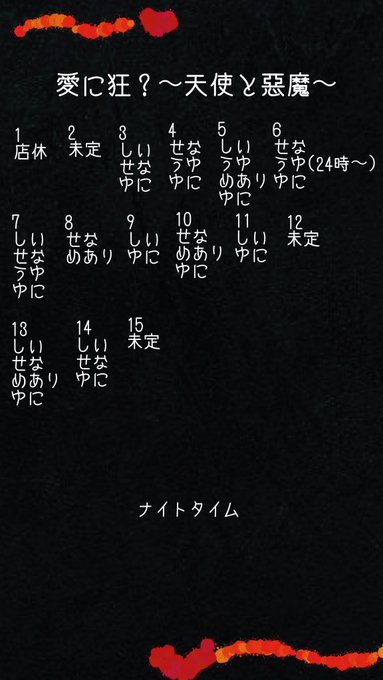 愛に狂？～天使と惡魔～
1
店休
2
未定
3
しい
せな
ゆに
4
せな
うゆ
ゆに
5
しい
うゆ
めあり
ゆに
6
せな
うゆ(24時～)
ゆに
7
しい
せな
うゆ
ゆに
8
せな
めあり
9
しい
ゆに
10
せな
めあり
ゆに
11
しい
ゆに
12
未定
13
しい
せな
めあり
ゆに
14
しい
せな
ゆに
15
未定
ナイトタイム